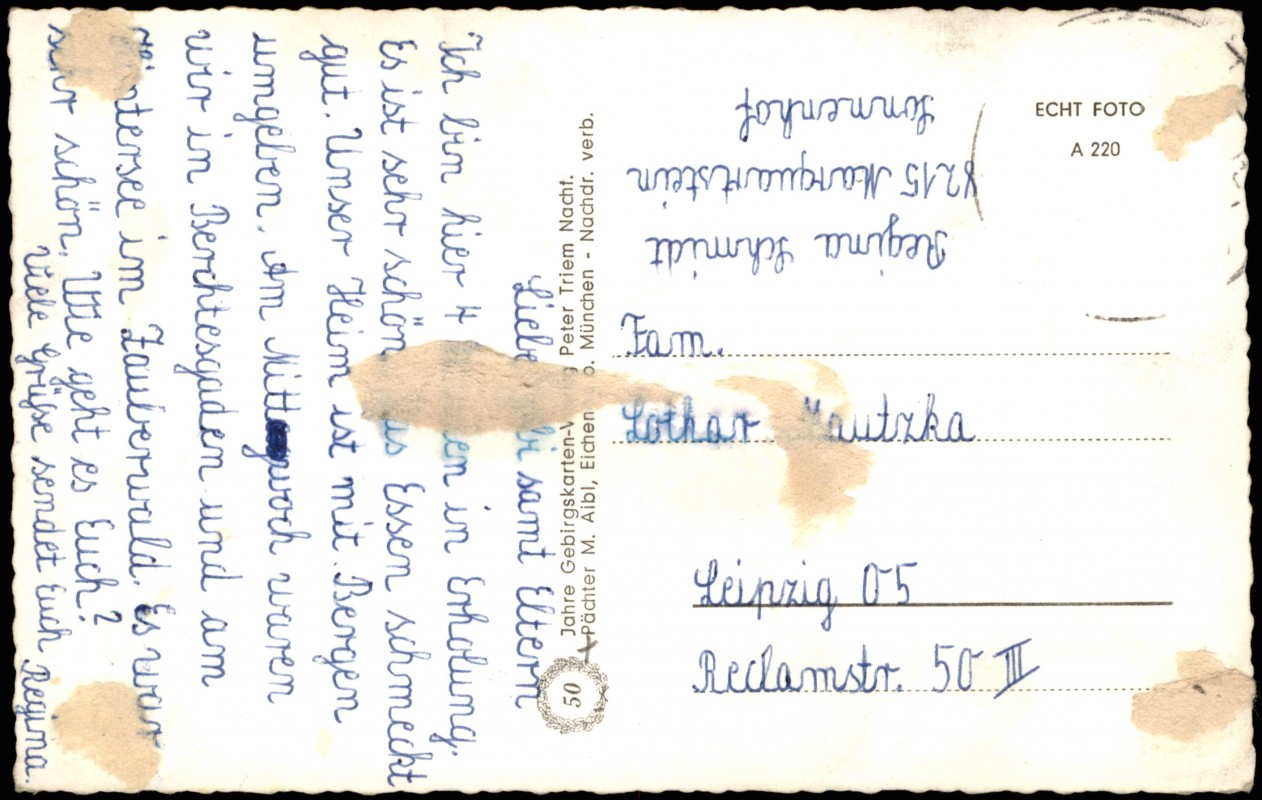 Liebe bi samt Eltern
Ich bin hier 4 en in Erholung.
Es ist sehr schön. Essen schmeckt
gut. Unser Heim ist mit Bergen
umgeben. Am Mittwoch waren
wir in Berchtesgaden und am
Hintersee im Zauberwald. Es war
sehr schön. Wie geht es Euch?
Viele Grüße sendet Euch Regina.
50 Jahre Gebirgskarten-V g Peter Triem Nachf.
Pächter M. Aibl, Eichen o. München - Nachdr. verb.
ECHT FOTO
A 220
Regina Schmidt
8215 Marquartstein
Sonnenhof
Fam.
Lothar autzka
Leipzig O5
Reclamstr. 50 III